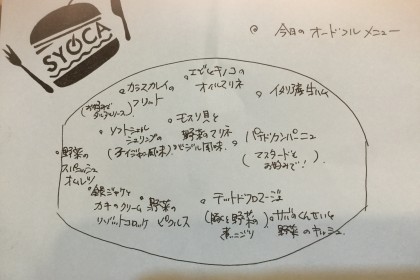 SYOCA
今日の オードブル メニュー
エビとキノコの
オイルマリネ
カラスカレイの
フリット
(お好みで
タルタルソース)
イタリア産生ハム
モスリ貝と
野菜のマリネ
バジル風味
ソフトシェル
シュリンプの
(チイジャン風味)
野菜の
スパニッシュ
オムレツ
パテドカンパーニュ
(マスタードと
お好みで!)
銀ジャケと
カキのクリーム
リバットコロッケ
野菜の
ピクルス
テットドフロマージュ
(豚と野菜の
煮こごり)
サバのくんせいと
野菜のキッシュ